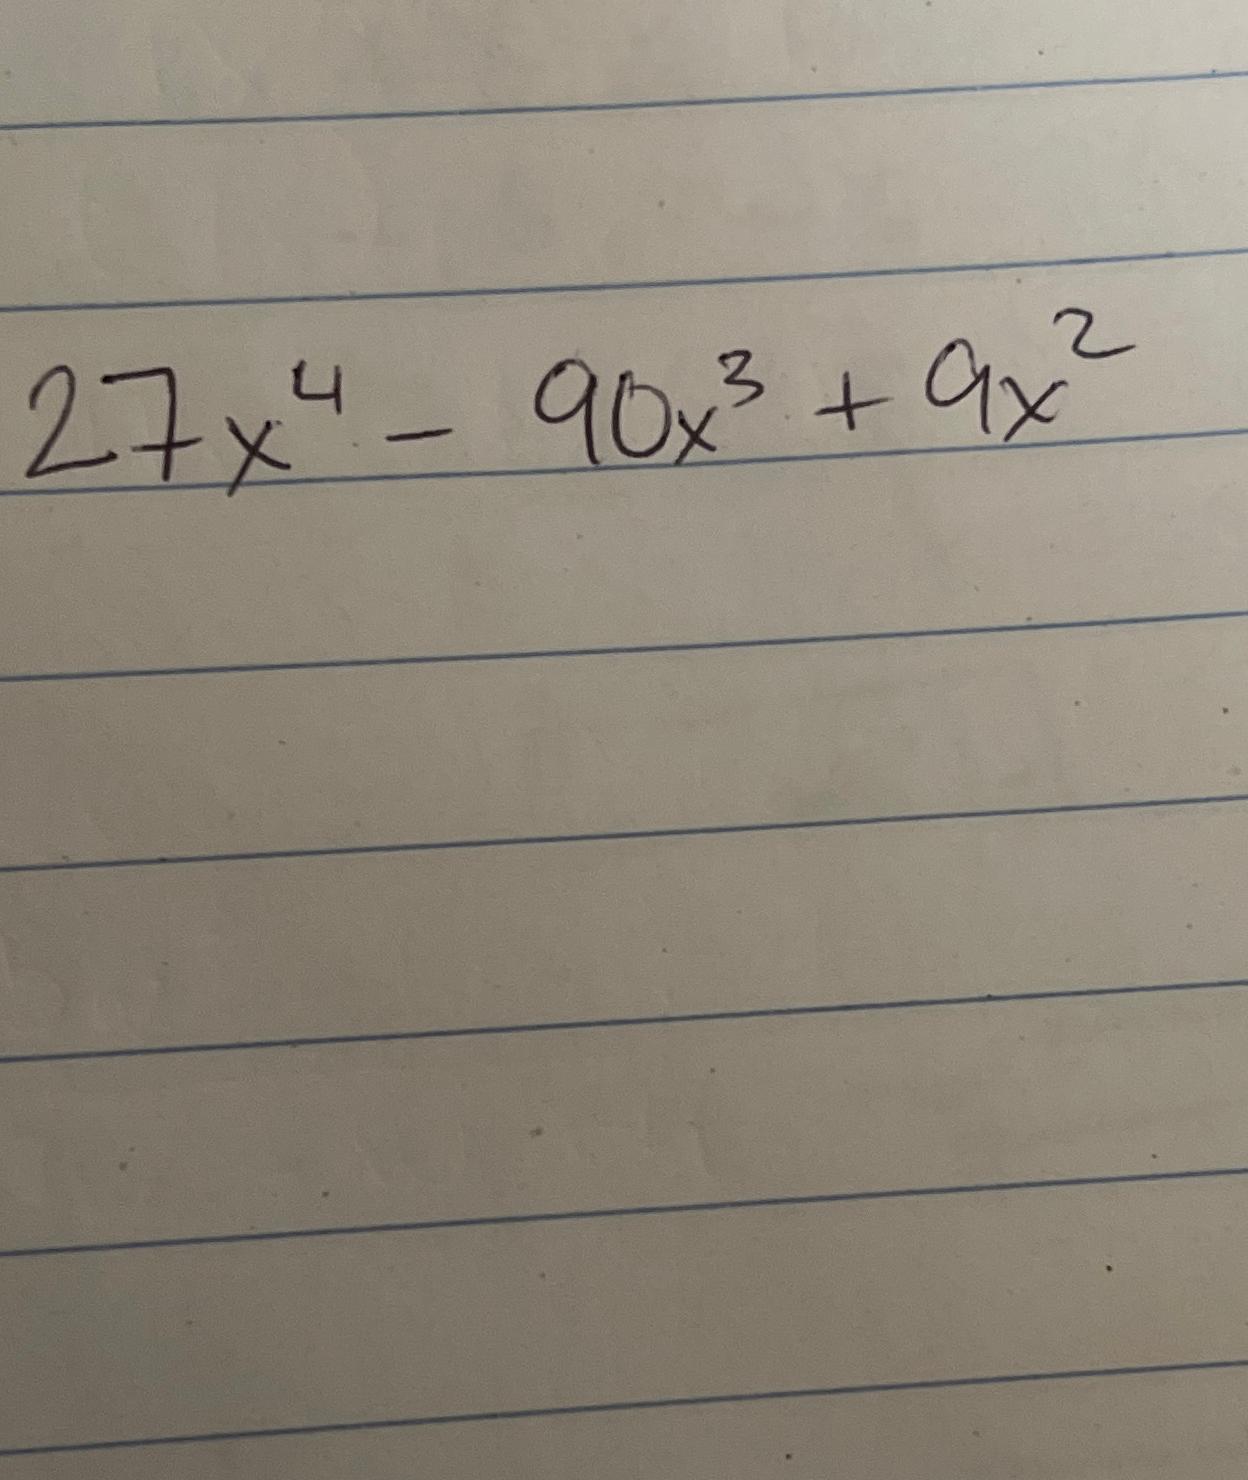 27x⁴ - 90x³ + 9x²